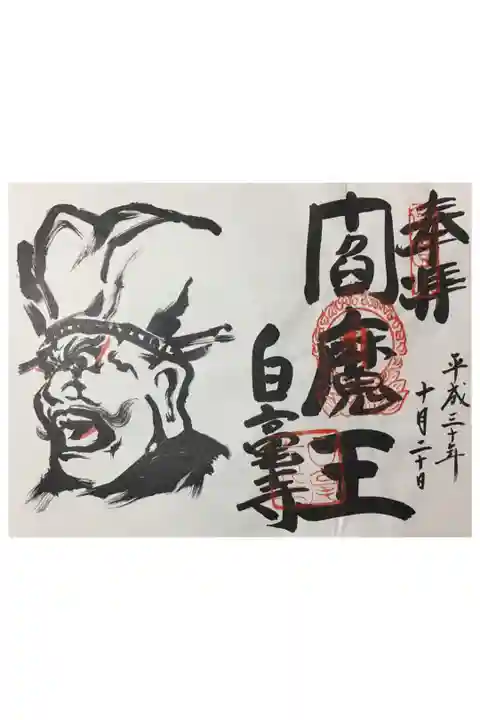 奉拝
閻魔王
白高寺
平成三十年
十月二十日